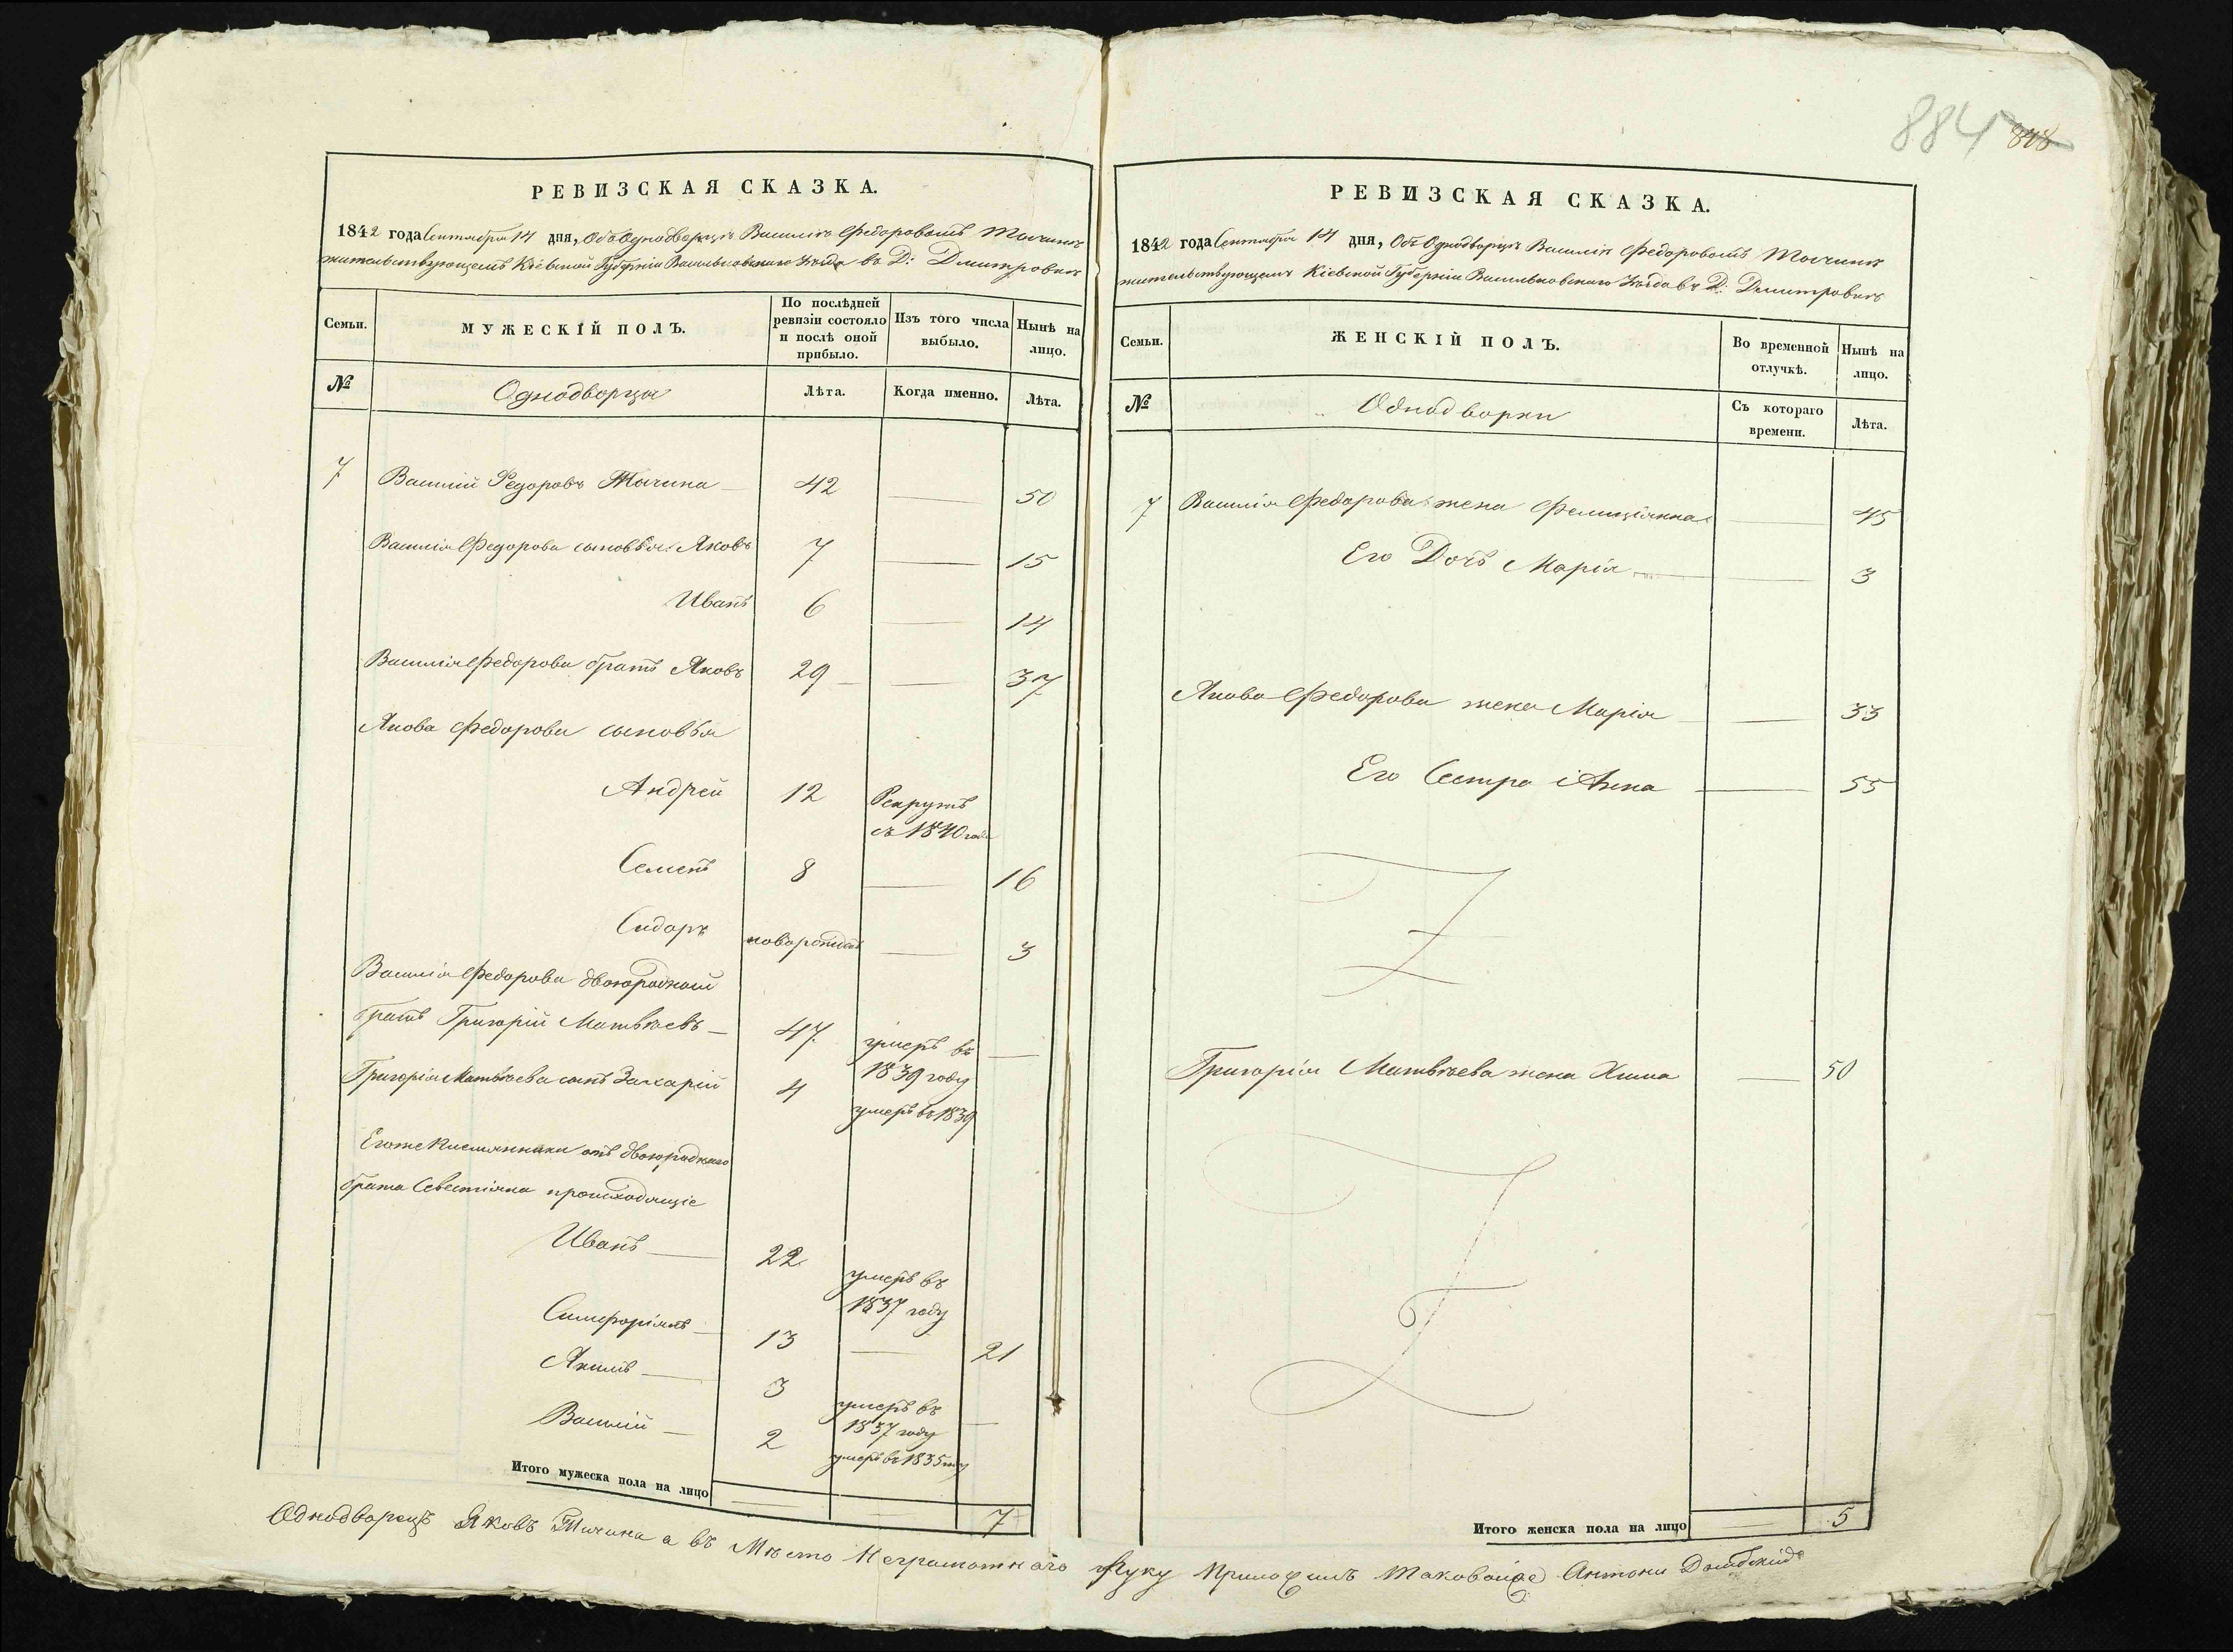 884 848
РЕВИЗСКАЯ СКАЗКА.
1842 года Сентября 14 дня, Объ Однодворцѣ Василіѣ Федоровомъ Тычинѣ
жительствующемъ Кіевской Губерніи Васильковскаго Уѣзда въ Д: Дмитровкѣ
Семьи.
МУЖЕСКІЙ ПОЛЪ.
По послѣдней ревизіи состояло и послѣ оной прибыло.
Изъ того числа выбыло.
Нынѣ на лицо.
№ Однодворцы Лѣта. Когда именно. Лѣта.
7 Василій Федоровъ Тычина 42 — 50
Василія Федорова сыновья Яковъ 7 — 15
Иванъ 6 — 14
Василія Федорова братъ Яковъ 29 — 37
Якова Федорова сыновья
Андрей 12 Рекрутъ
съ 1840 года
Семенъ 8 — 16
Сидоръ новорожден — 3
Василія Федорова двоюродный
братъ Григорій Матвѣевъ — 47 умеръ въ —
1839 году
Григорія Матвѣева сынъ Захарій 4 умеръ въ 1839
Егоже Племянники отъ двоюроднаго
брата Севестіяна происходящіе
Иванъ — 22 умеръ въ
1837 году
Симфоріянъ — 13 — 21
Якимъ — 3 умеръ въ —
1837 году
Василій — 2 умеръ въ 1835 году
Итого мужеска пола на лицо — 7
РЕВИЗСКАЯ СКАЗКА.
1842 года Сентября 14 дня, Объ Однодворцѣ Василіѣ Федоровомъ Тычинѣ
жительствующемъ Кіевской Губерніи Васильковскаго Уѣзда въ Д: Дмитровкѣ
Семьи.
ЖЕНСКІЙ ПОЛЪ.
Во временной отлучкѣ.
Нынѣ на лицо.
№ Однодворки Съ котораго времени. Лѣта.
7 Василія Федорова жена Фелиціянна — 45
Его Дочь Марія — 3
Якова Федорова жена Марія — 33
Его Сестра Анна — 55
Григорія Матвѣева жена Хима — 50
Итого женска пола на лицо — 5
Однодворецъ Яковъ Тычина а въ Мѣсто Неграмотнаго Руку Приложилъ таковойже Антони